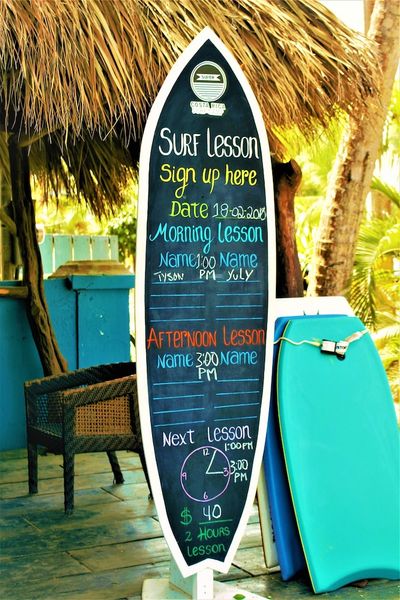 COSTA RICA
Surf Lesson
Sign up here
Date 18-02-2018
Morning Lesson
Name 1:00 PM Name
Tyson Yuly
Afternoon Lesson
Name 3:00 PM Name
Next Lesson
1:00PM
3:00 PM
12
9 3
6
$ 40
2 Hours
Lesson